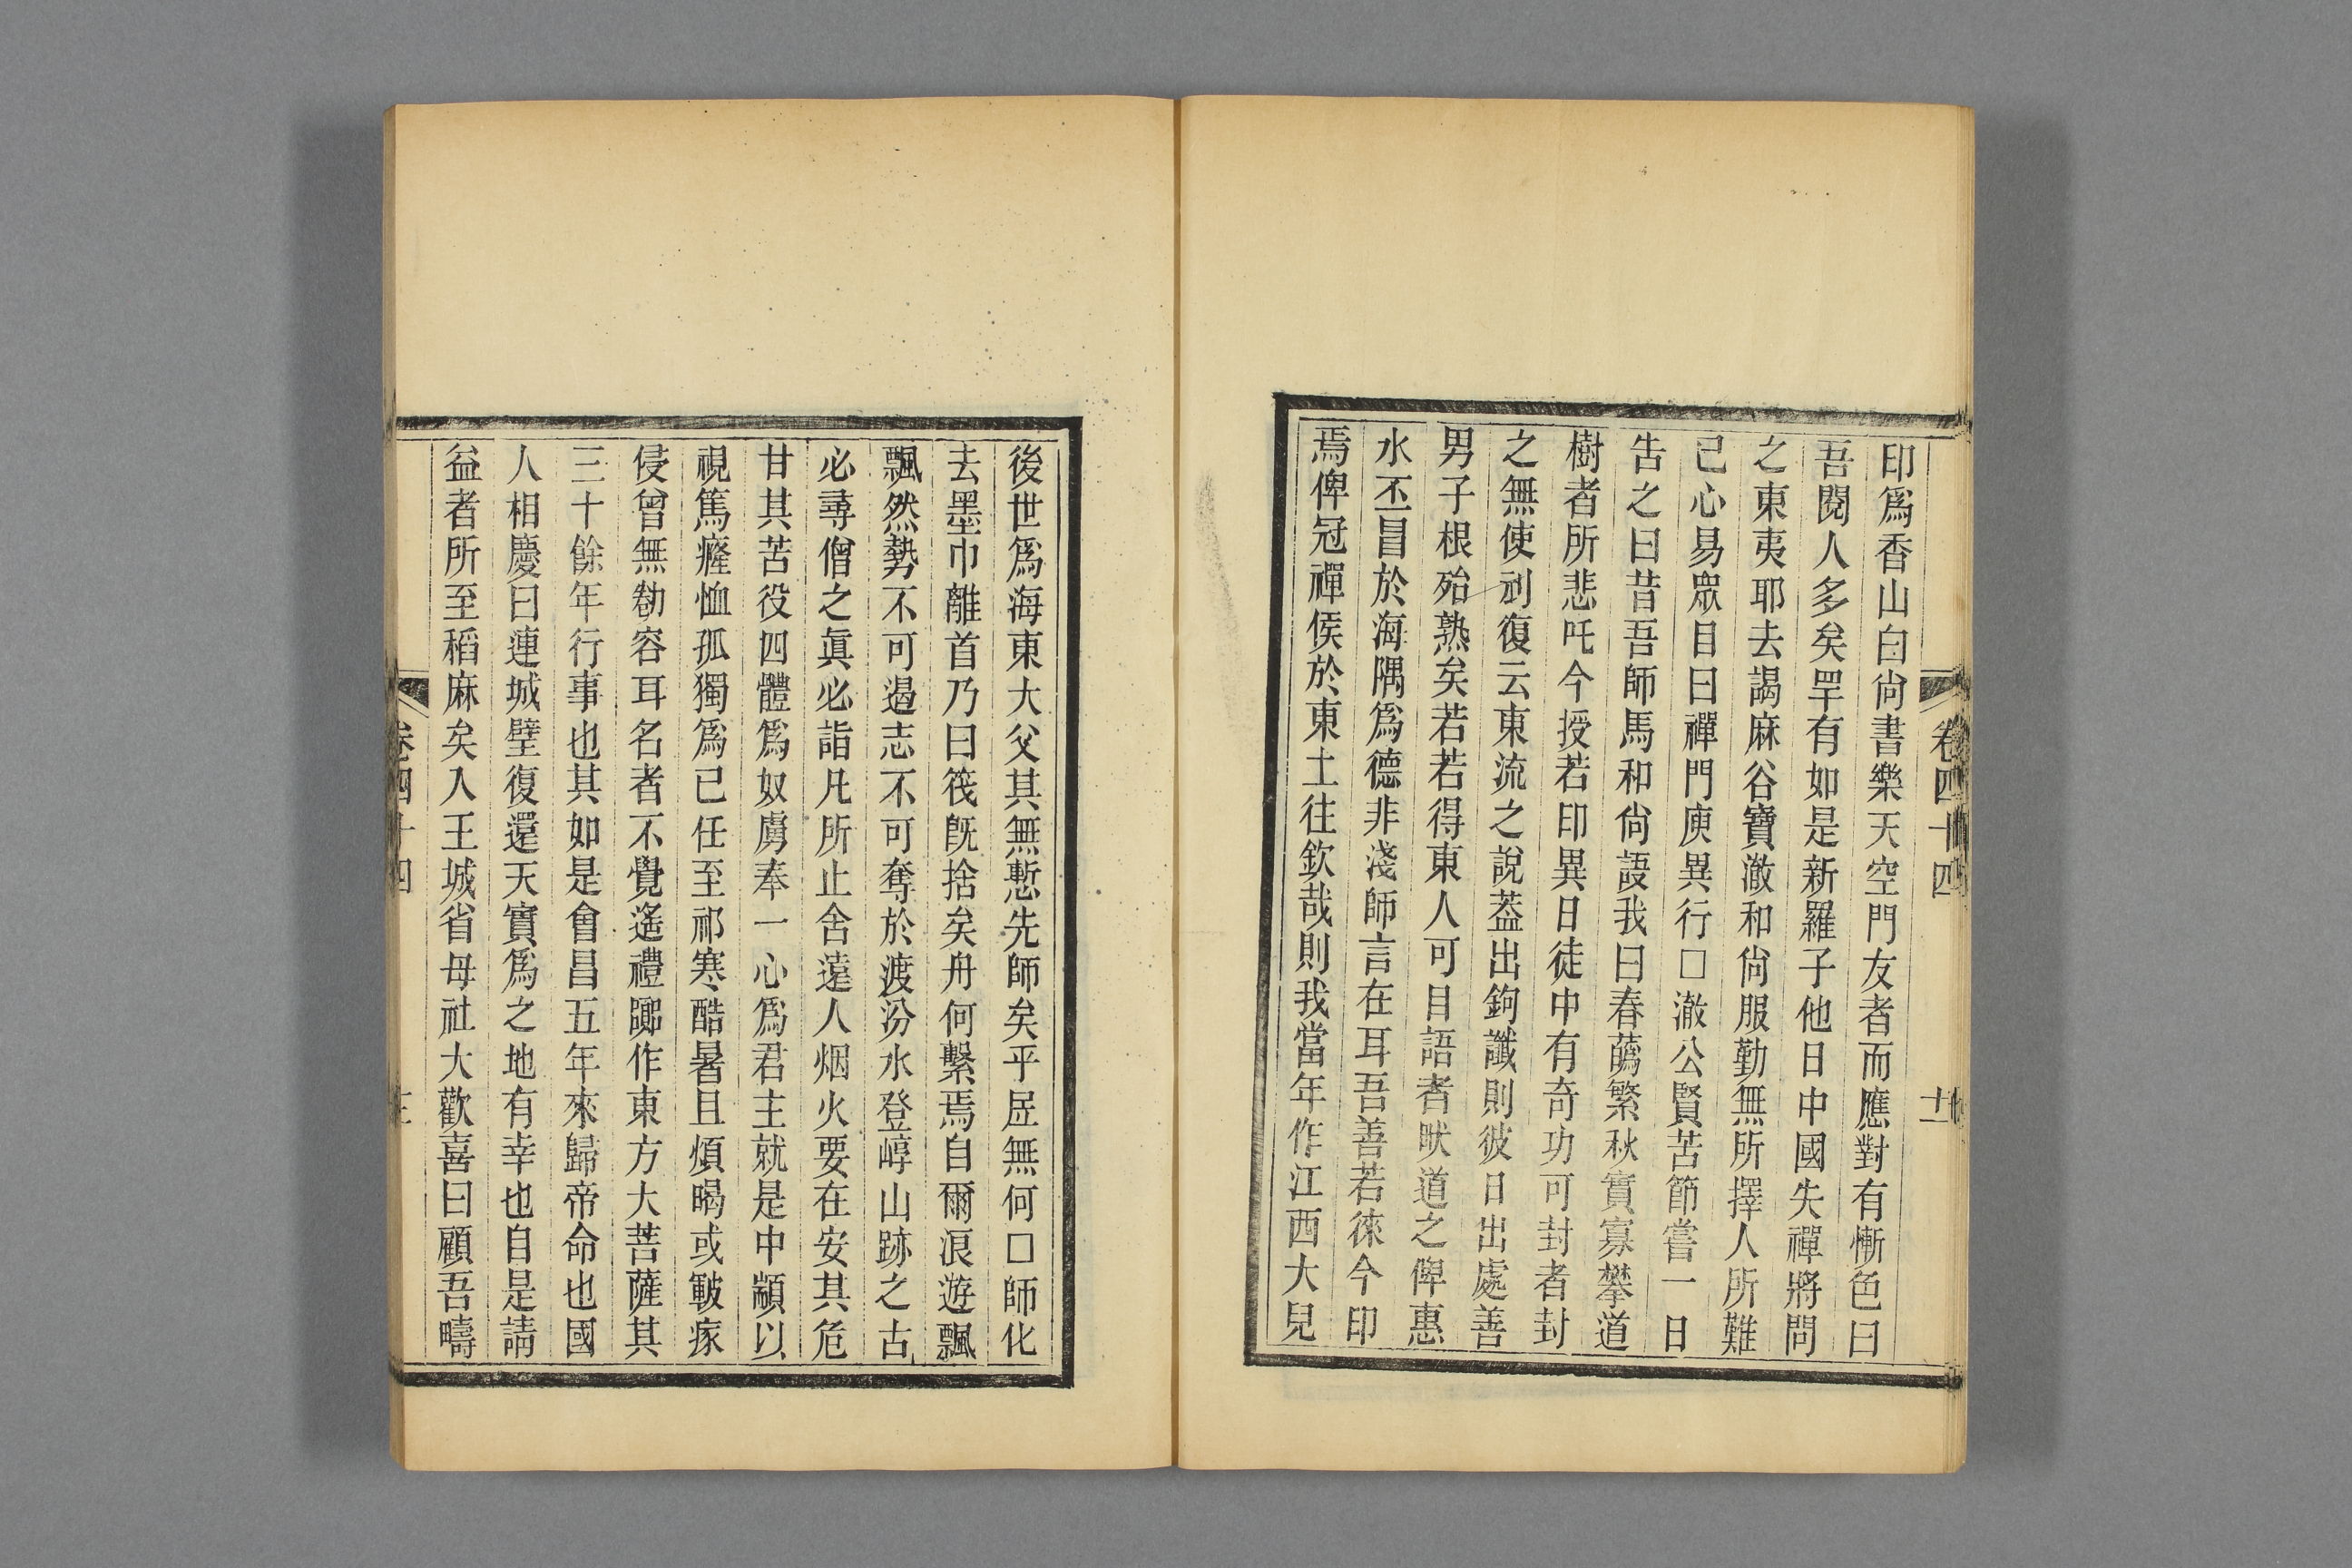 卷四十四
十二
印爲香山白尙書樂天空門友者而應對有慚色曰
吾閱人多矣罕有如是新羅子他日中國失禪將問
之東夷耶去謁麻谷寶澈和尙服勤無所擇人所難
已心易眾目曰禪門庾異行□澈公賢苦節嘗一日
告之曰昔吾師馬和尙語我曰春蘤繁秋實寡攀道
樹者所悲吒今授若印異日徒中有奇功可封者封
之無使刓復云東流之說葢出鉤讖則彼日出處善
男子根殆熟矣若若得東人可目語者畎道之俾惠
水丕冒於海隅爲德非淺師言在耳吾善若徠今印
焉俾冠禪侯於東土往欽哉則我當年作江西大兒
後世爲海東大父其無慙先師矣乎㞐無何□師化
去墨巾離首乃曰筏旣捨矣舟何繫焉自爾浪遊飄
飄然勢不可遏志不可奪於渡汾水登崞山跡之古
必尋僧之眞必詣凡所止舍遠人烟火要在安其危
甘其苦役四體爲奴虜奉一心爲君主就是中顓以
視篤癃恤孤獨爲已任至祁寒酷暑且煩暍或皸瘃
侵曾無勌容耳名者不覺遙禮嚻作東方大菩薩其
三十餘年行事也其如是會昌五年來歸帝命也國
人相慶曰連城璧復還天實爲之地有幸也自是請
益者所至稻麻矣入王城省母社大歡喜曰顧吾疇
卷四十四